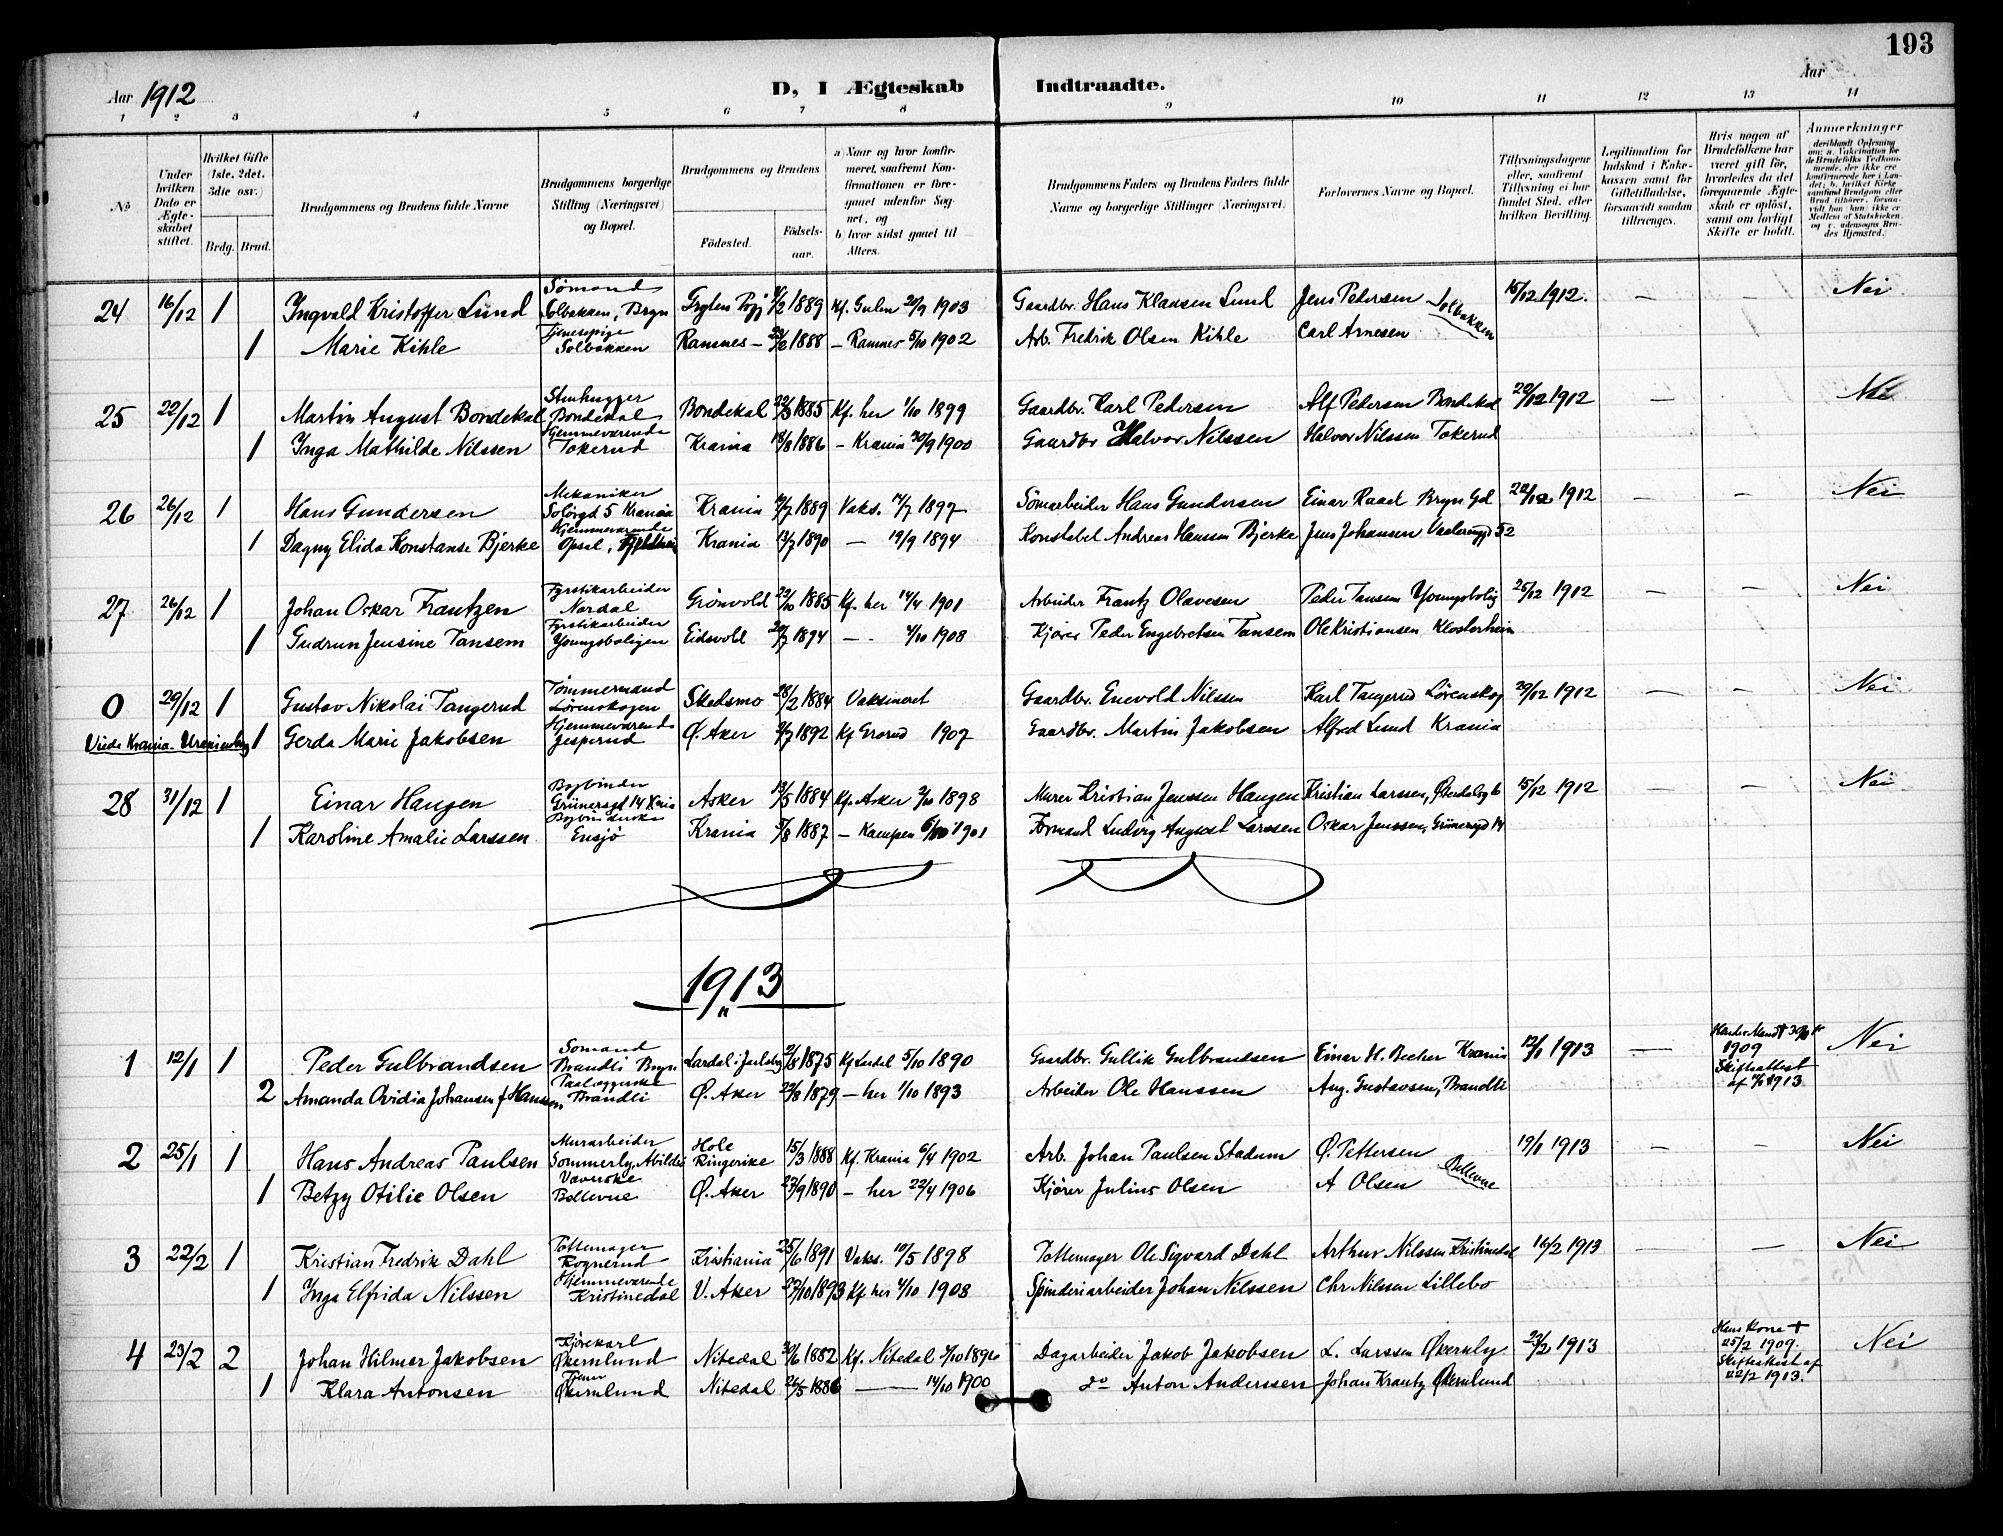 193
Aar 1912 D, I Ægteskab Indtraadte. Aar
1 2 3 4 5 6 7 8 9 10 11 12 13 14
No
Under hvilken Dato er Ægteskabet stiftet.
Hvilket Gifte (1ste, 2det, 3die osv.)
Brdg. Brud.
Brudgommens og Brudens fulde Navne
Brudgommens borgerlige Stilling (Næringsvei) og Bopæl.
Brudgommens og Brudens
Fødested. Fødselsaar.
a) Naar og hvor konfirmeret, saafremt Konfirmationen er foregaaet udenfor Sognet, og
b) hvor sidst gaaet til Alters.
Brudgommens Faders og Brudens Faders fulde Navne og borgerlige Stillinger (Næringsvei)
Forlovernes Navne og Bopæl.
Tillysningsdagene eller, saafremt Tillysning ei har fundet Sted, efter hvilken Bevilling.
Legitimation for Indskud i Enkekassen samt for Giftetilladelse, forsaavidt saadan tiltrænges.
Hvis nogen af Brudefolkene har været gift før, hvorledes da det foregaaende Ægteskab er opløst, samt om lovligt Skifte er holdt.
Anmerkninger
24 16/12 1 Ingvald Kristoffer Lund Sømand Solbakken, Bryn 1889 Kf. Gulen 1903 Gaardbr. Hans Klausen Lund Jens Pedersen Solbakken 15/12 1912. — — Nei
1 Marie Kihle Tjenestpige Solbakken Ramnes 1888 — Ramnes 5/10 1902 Arb. Fredrik Olsen Kihle Carl Arnesen
25 22/12 1 Martin August Bondekal Stenhugger Bondekal Bondekal 1885 Kf. her 1/10 1899 Gaardbr. Karl Pedersen Alf Pedersen Bondekal 22/12 1912 — Nei
1 Inga Mathilde Nilssen Hjemmeværende Tokerud Krania 18/8 1886 — Krania 30/9 1900 Gaardbr Halvor Nilssen Halvor Nilssen Tokerud
26 26/12 1 Hans Gundersen Mekaniker Solørgd 5 Krania Krania 1889 Vaks. 14/7 1897 Sömarbeider Hans Gundersen Einar Raael Bryn Gd 22/12 1912 — — Nei
1 Dagny Elida Konstanse Bjerke Hjemmeværende Opsal, Krania 13/7 1890 — 19/9 1894 Konstabel Andreas Hanssen Bjerke Jens Johansen Vaalerenggd 52
27 26/12 1 Johan Oskar Frantzen Fyrstikarbeider Nordal Grönvold 22/10 1885 Kf. her 14/4 1901 Arbeider Frantz Olavesen Peder Tansem Youngsbolig 25/12 1912 — — Nei
1 Gudrun Jensine Tansem Fyrstikarbeider Youngsboligen Eidsvold 1894 — 4/10 1908 Kjører Peder Engebretsen Tansem Ole Kristiansen Klosterheim
0 29/12 1 Gustav Nikolai Tangerud Tømmermand Lørenskogen Skedsmo 28/2 1884 Vaksineret Gaardbr. Enevold Nilssen Karl Tangerud Lørenskog 29/12 1912 — — Nei
Viede Krania Uranienborg 1 Gerda Marie Jakobsen Hjemmeværende Jesperud Ø. Aker 1892 Kf Grorud 1907 Gaardbr. Martin Jakobsen Alfred Lund Krania
28 31/12 1 Einar Haugen Bogbinder Grünersgd 14 Kria Asker 13/5 1884 Kf. Asker 2/10 1898 Murer Kristian Jenssen Haugen Kristian Larssen, 15/12 1912 — — Nei
1 Karoline Amalie Larssen Bogbinderske Ensjø Krania 5/8 1887 — Kampen 6/10 1901 Formand Ludvig August Larssen Oskar Jenssen, Grünersgd 14
1913
1 12/1 1 Peder Gulbrandsen Sömand Brandli Bryn Lardal i Jarlsberg 2/8 1875 Kf Lardal 5/10 1890 Gaardbr. Gullik Gulbrandsen Einar H. Becher Krania 12/1 1913 — Hendes Mand † 1909 Skifteattest af 1913. Nei
2 Amanda Ovidia Johansen f Hanssen Brandli Ø. Aker 22/8 1879 — her 1/10 1893 Arbeider Ole Hanssen Aug. Gustavsen, Brandli
2 25/1 1 Hans Andreas Paulsen Murarbeider Sommerly, Abildsø Hole Ringerike 15/3 1888 Kf. Krania 6/4 1902 Arb. Johan Paulsen Stadum Ø. Pettersen Bellevue 19/1 1913 — — Nei
1 Betzy Otilie Olsen Væverske Bellevue Ø. Aker 27/9 1890 — her 22/4 1906 Kjører Julius Olsen A Olsen
3 22/2 1 Kristian Fredrik Dahl Pottemager Rognerud Kristiania 25/6 1891 Vaks. 10/5 1898 Pottemager Ole Sigvard Dahl Arthur Nilssen Kristinedal 16/2 1913 — — Nei
1 Inga Elfrida Nilssen Hjemmeværende Kristinedal V. Aker 27/10 1893 Kf her 4/10 1908 Spinderiarbeider Johan Nilssen Chr Nilssen Lillebo
4 23/2 2 Johan Hilmar Jakobsen Kjörekarl Økernlund Nitedal 1882 Kf. Nitedal 1896 Dagarbeider Jakob Jakobsen L. Larssen Økernly 1913 Hans Kone † 25/2 1909. Skifteattest af 22/2 1913. Nei
1 Klara Antonsen Tjener Økernlund Nitedal 26/5 1886 — 14/10 1900 do Anton Anderssen Johan Krantz Økernlund